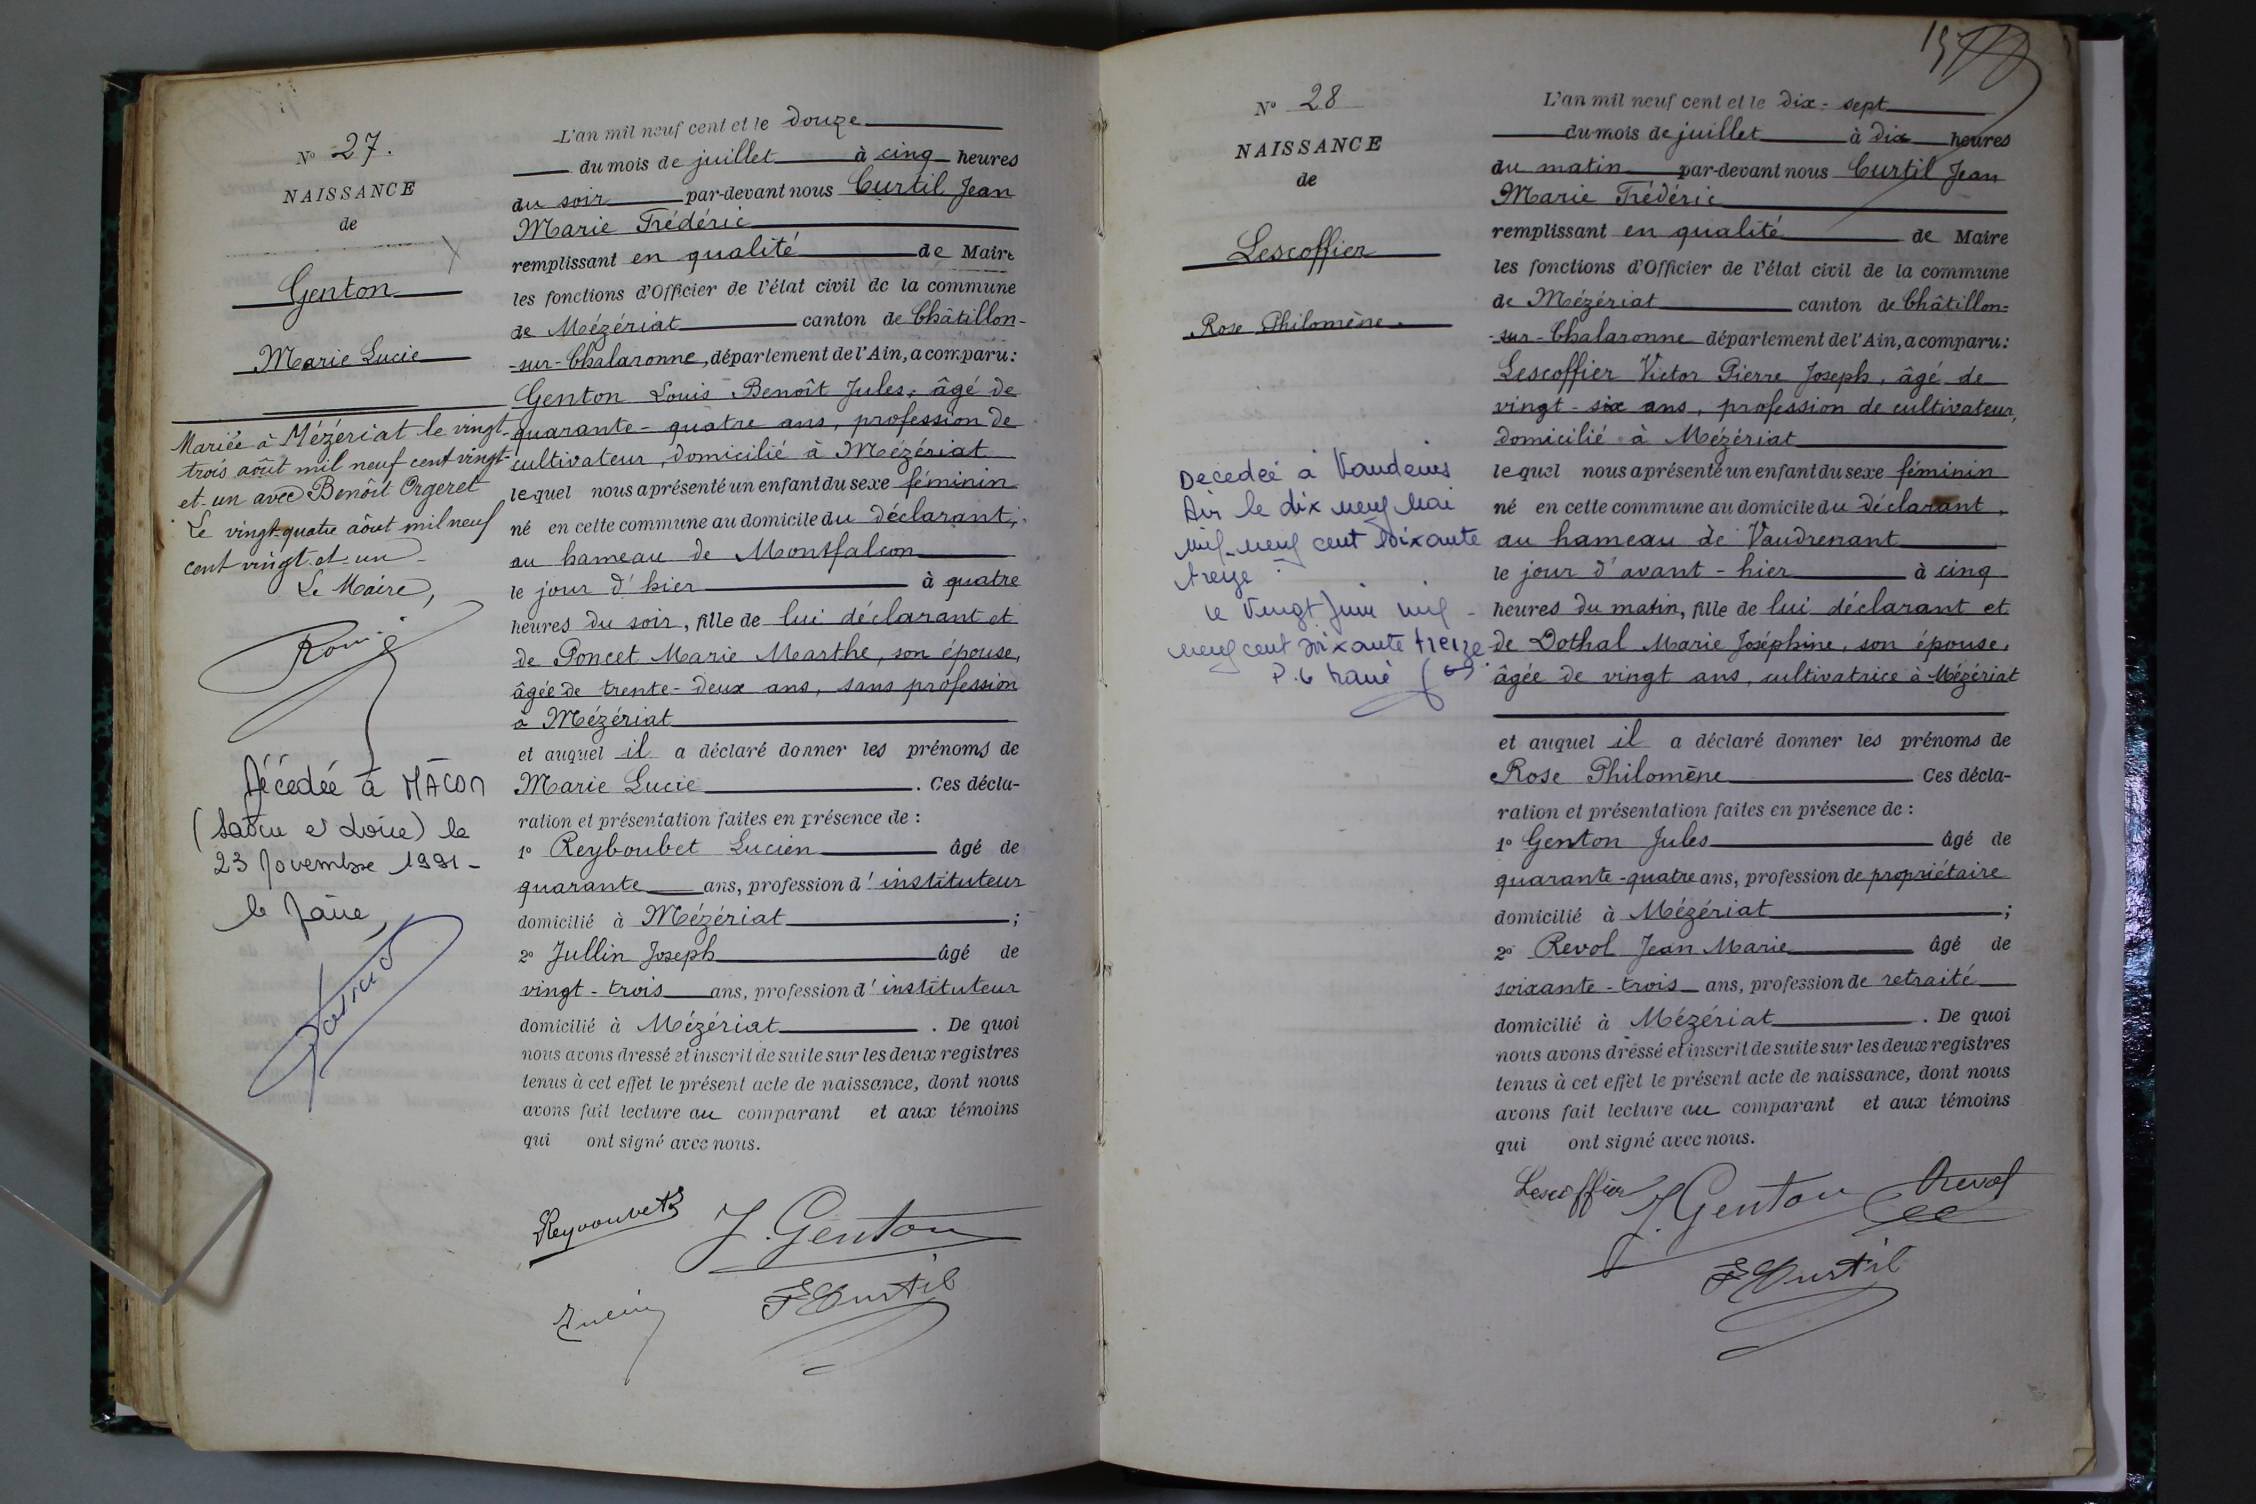 N° 27.
NAISSANCE
de
Genton
Marie Lucie
Mariée à Mézériat le vingt-
trois août mil neuf cent vingt-
et-un avec Benoît Orgeret
Le vingt-quatre août mil neuf
cent vingt-et-un
Le Maire,
Décédée à MÂCON
(Saône et Loire) le
23 Novembre 1991-
le Maire,
L'an mil neuf cent et le douze
du mois de juillet à cinq heures
du soir par-devant nous Curtil Jean
Marie Frédéric
remplissant en qualité de Maire
les fonctions d'Officier de l'état civil de la commune
de Mézériat canton de Châtillon-
-sur-Chalaronne, département de l'Ain, a comparu:
Genton Louis Benoît Jules, âgé de
quarante-quatre ans, profession de
cultivateur, domicilié à Mézériat
lequel nous a présenté un enfant du sexe féminin
né en cette commune au domicile du déclarant,
au hameau de Montfalcon
le jour d'hier à quatre
heures du soir, fille de lui déclarant et
de Poncet Marie Marthe, son épouse,
âgée de trente-deux ans, sans profession
à Mézériat
et auquel il a déclaré donner les prénoms de
Marie Lucie. Ces décla-
ration et présentation faites en présence de:
1° Reyboubet Lucien âgé de
quarante ans, profession d'instituteur
domicilié à Mézériat;
2° Jullin Joseph âgé de
vingt-trois ans, profession d'instituteur
domicilié à Mézériat. De quoi
nous avons dressé et inscrit de suite sur les deux registres
tenus à cet effet le présent acte de naissance, dont nous
avons fait lecture au comparant et aux témoins
qui ont signé avec nous.
J. Genton
F Curtil
N° 28
NAISSANCE
de
Lescoffier
Rose Philomène.
Décédée à Vandeins
Ain le dix neuf Mai
mil-neuf cent soixante
treize
le Vingt Juin mil-
neuf cent soixante treize
L'an mil neuf cent et le dix-sept
du mois de juillet à dix heures
du matin par-devant nous Curtil Jean
Marie Frédéric
remplissant en qualité de Maire
les fonctions d'Officier de l'état civil de la commune
de Mézériat canton de Châtillon-
-sur-Chalaronne département de l'Ain, a comparu:
Lescoffier Victor Pierre Joseph, âgé de
vingt-six ans, profession de cultivateur,
domicilié à Mézériat
lequel nous a présenté un enfant du sexe féminin
né en cette commune au domicile du déclarant,
au hameau de Vaudrenant
le jour d'avant-hier à cinq
heures du matin, fille de lui déclarant et
de Dothal Marie Joséphine, son épouse,
âgée de vingt ans, cultivatrice à Mézériat
et auquel il a déclaré donner les prénoms de
Rose Philomène. Ces décla-
ration et présentation faites en présence de:
1° Genton Jules âgé de
quarante-quatre ans, profession de propriétaire
domicilié à Mézériat;
2° Revol Jean Marie âgé de
soixante-trois ans, profession de retraité
domicilié à Mézériat. De quoi
nous avons dressé et inscrit de suite sur les deux registres
tenus à cet effet le présent acte de naissance, dont nous
avons fait lecture au comparant et aux témoins
qui ont signé avec nous.
Lescoffier J. Genton Revol
F Curtil